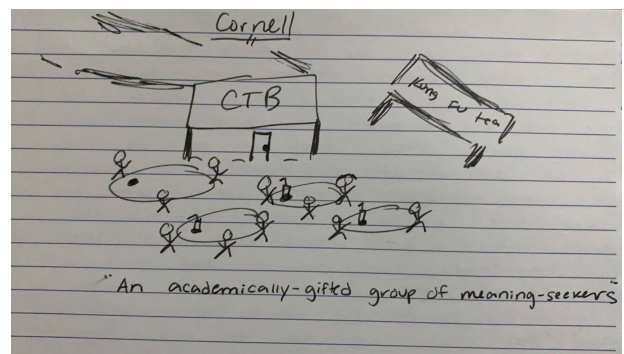 Cornell
CTB
Kung Fu tea
"An academically-gifted group of meaning-seekers"